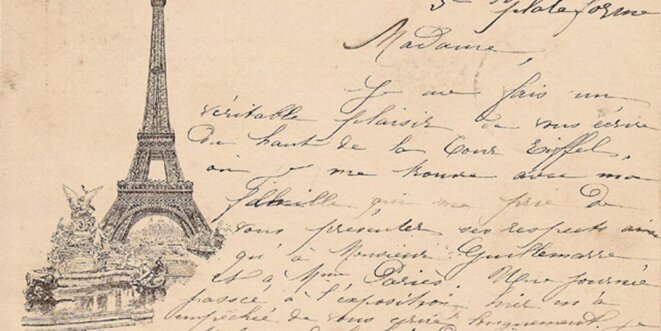 3e plateforme
Madame,
Je me fais un
véritable plaisir de vous écrire
du haut de la Tour Eiffel,
où je me trouve avec ma
famille qui me prie de
vous présenter ses respects ainsi
qu'à Monsieur Guillemarre
et à Mme Paries. Une journée
passée à l'exposition m'en a
empêchée de vous écrire longuement